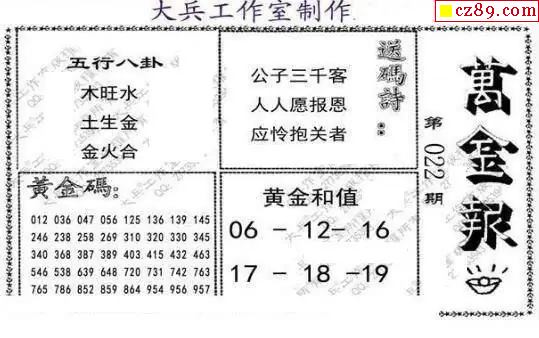 大兵工作室制作
cz89.com
五行八卦
木旺水
土生金
金火合
送碼詩：
公子三千客
人人愿报恩
应怜抱关者
萬金報
第022期
黃金碼：
012 036 047 056 125 136 139 145
246 238 258 269 310 320 330 345
340 368 387 389 403 415 432 463
546 538 639 648 720 731 742 763
765 786 852 859 864 954 956 957
黄金和值
06 - 12 - 16
17 - 18 - 19